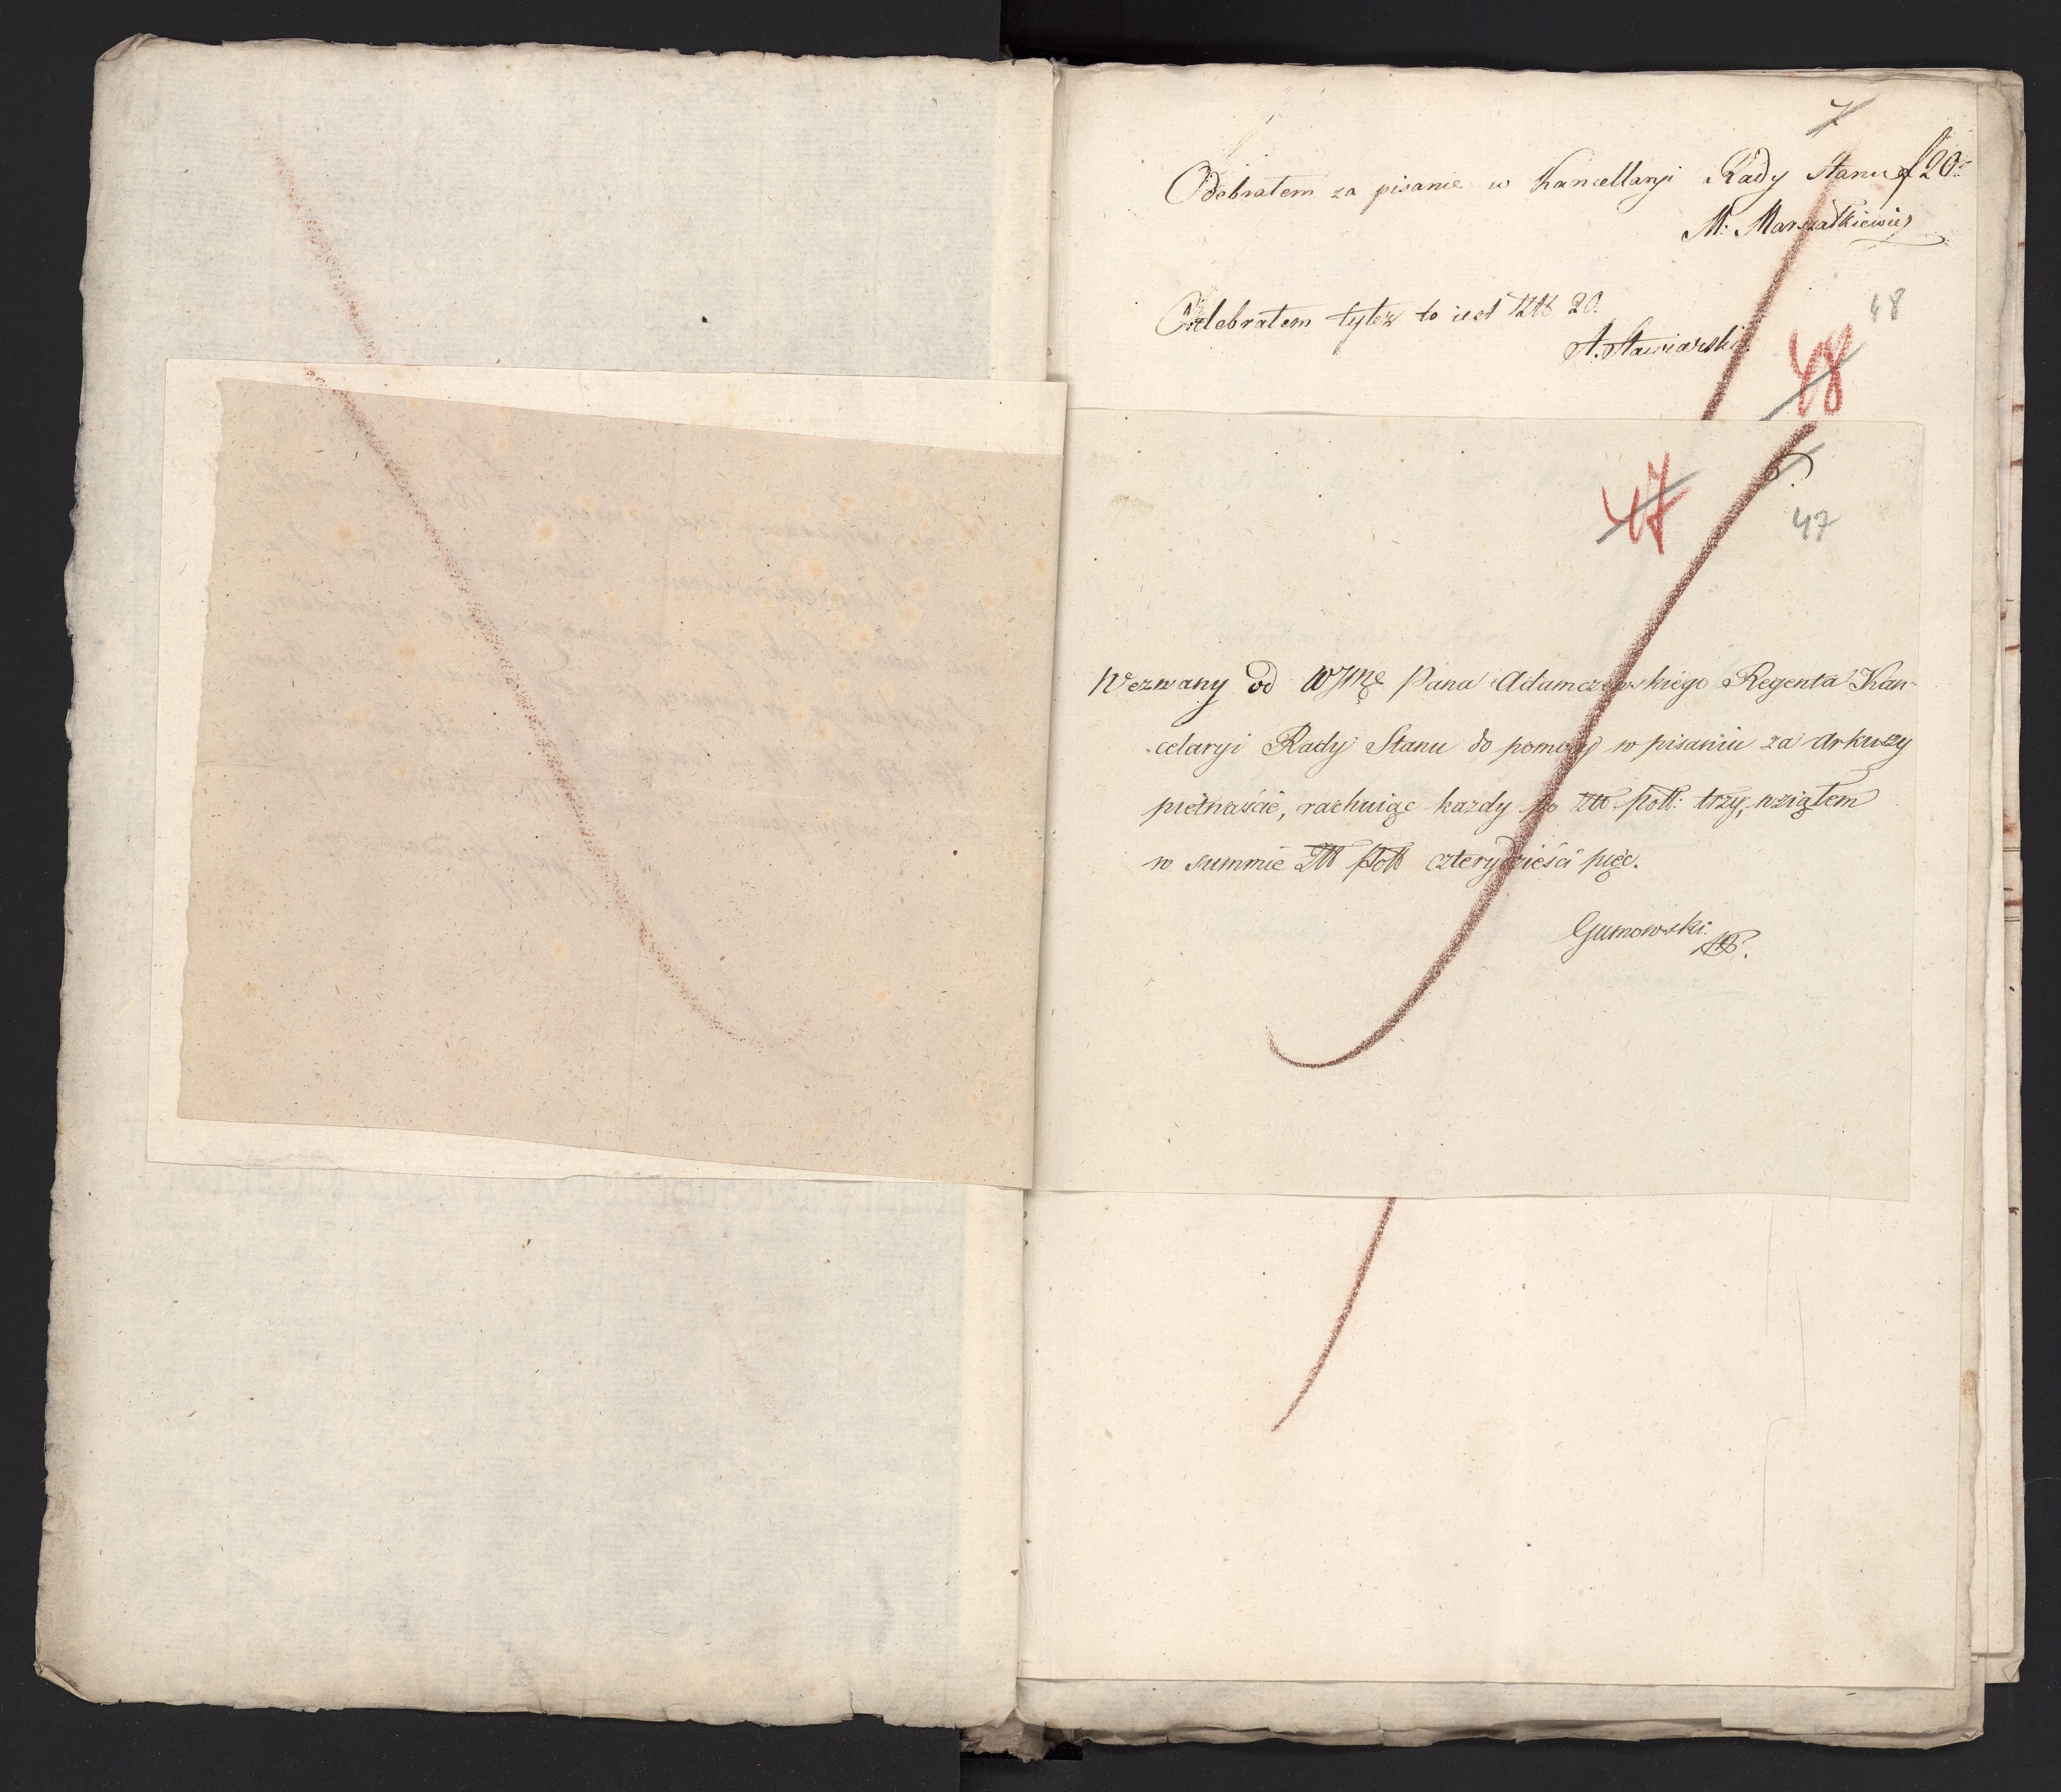 7
Odebrałem za pisanie w Kancellaryi Rady Stanu f 20
M: Marszałkiewicz
Odebrałem tyleż to iest Złł 20.
A. Stawiarski
48
48
47
6.
47
Wezwany od WJmę Pana Adamczewskiego Regenta Kan-
celaryi Rady Stanu do pomocy w pisaniu za Arkuszy
piętnaście, rachuiąc każdy po Złł poll: trzy, wziąłem
w summie Złł Poll czterydzieści pięć.
Gumowski.